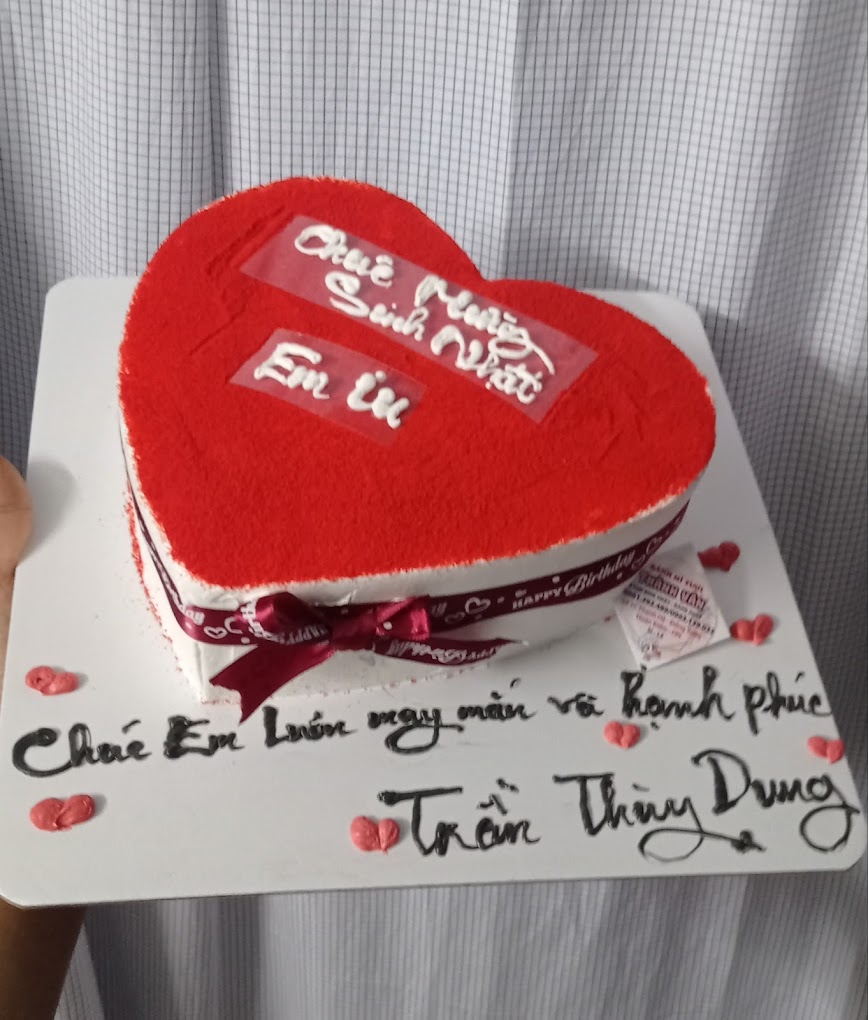 Chúc Mừng
Sinh Nhật
Em iu
HAPPY Birthday
BÁNH MÌ TƯƠI
THÀNH VÂN
Chúc Em Luôn may mắn và hạnh phúc
Trần Thùy Dung